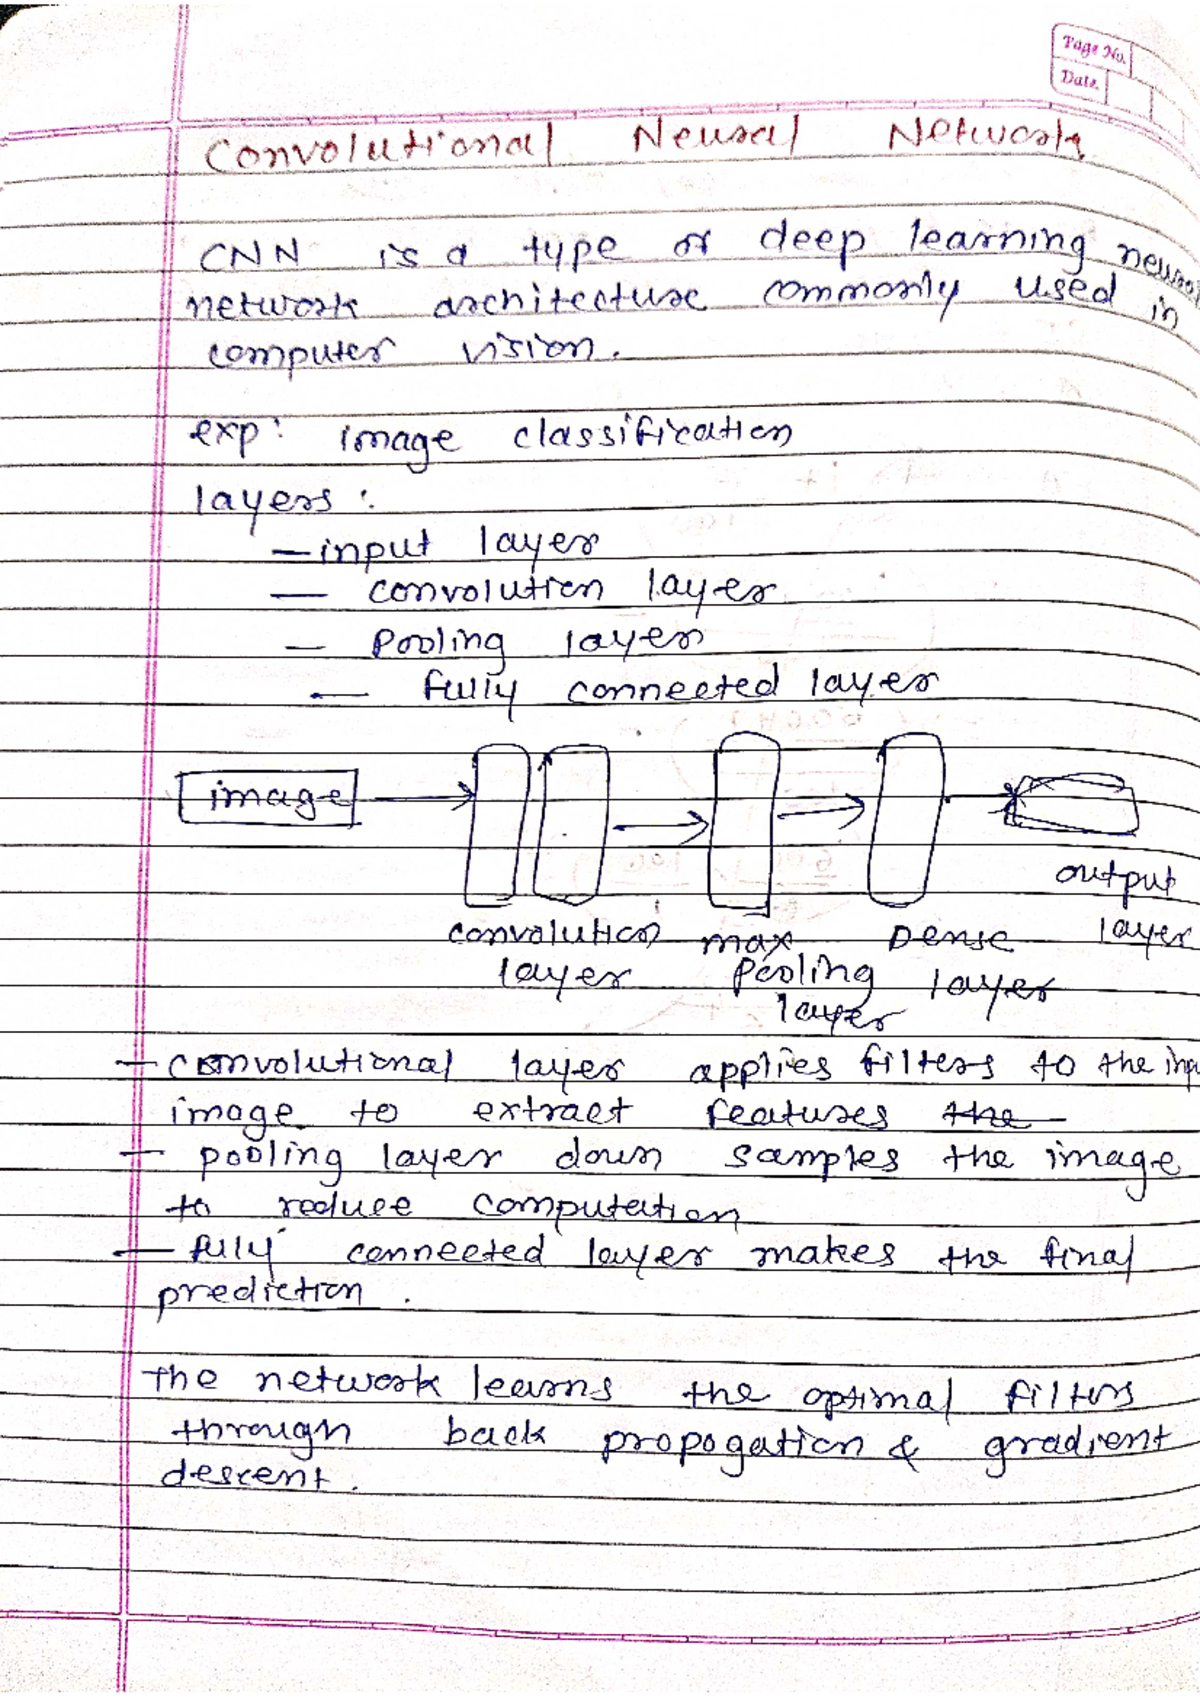 Page No.
Date
Convolutional Neural Network
CNN is a type of deep learning neural
network architecture commonly used in
computer vision.
exp: image classification
layers:
- input layer
- convolution layer
- Pooling layer
- fully connected layer
image
output
convolution max Dense layer
layer pooling layer
layer
- convolutional layer applies filters to the inpu
image to extract features the
- pooling layer down samples the image
to reduce computation
- fully connected layer makes the final
prediction.
The network learns the optimal filters
through back propogation & gradient
descent.